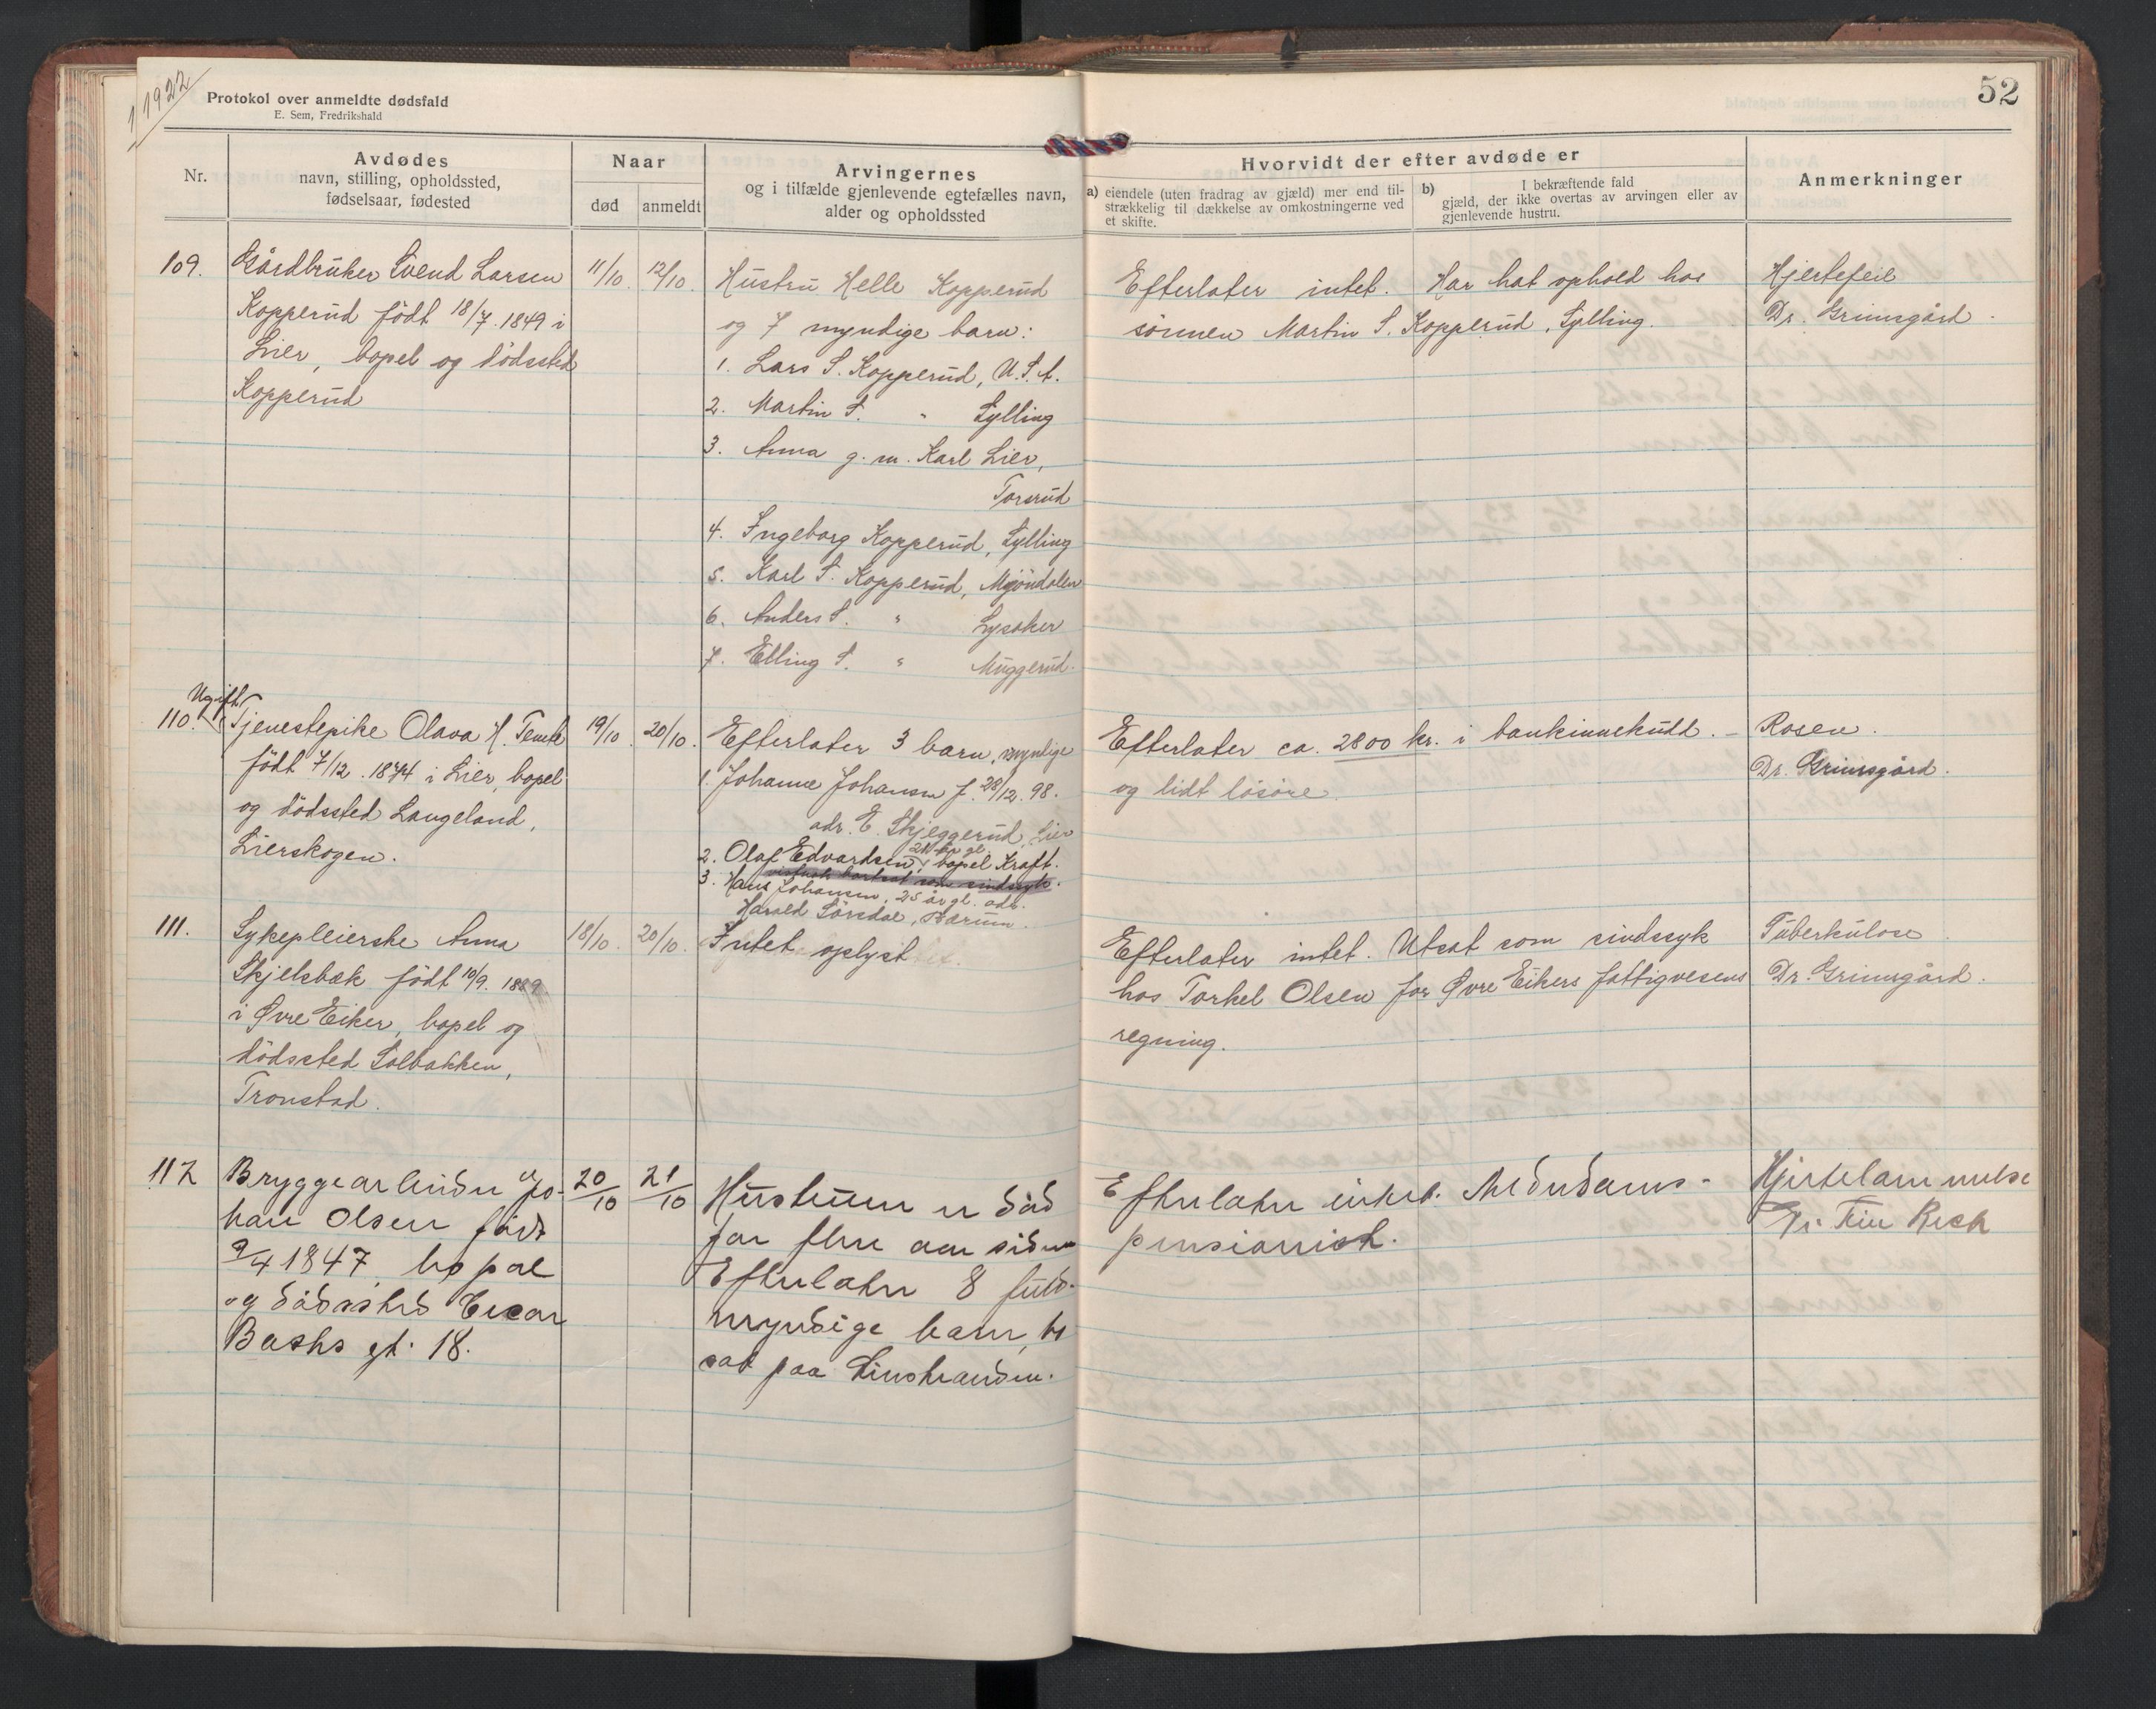 1922
Protokol over anmeldte dødsfald
E. Sem, Fredrikshald
52
Nr.
Avdødes
navn, stilling, opholdssted,
fødselsaar, fødested
Naar
død
anmeldt
Arvingernes
og i tilfælde gjenlevende egtefælles navn,
alder og opholdssted
Hvorvidt der efter avdøde er
a) eiendele (uten fradrag av gjæld) mer end til-
strækkelig til dækkelse av omkostningerne ved
et skifte.
b) I bekræftende fald
gjæld, der ikke overtas av arvingen eller av
gjenlevende hustru.
Anmerkninger
109.
Gårdbruker Svend Larsen
Kopperud født 18/7. 1849 i
Lier, bopel og dödssted
Kopperud
11/10.
12/10.
Hustru Helle Kopperud
og 7 myndige barn:
1. Lars S. Kopperud, U.S.A.
2. Martin S. " Sylling
3. Anna g. m. Karl Lier,
Torsrud
4. Ingeborg Kopperud, Sylling
5. Karl S. Kopperud, Mjöndalen
6. Anders S. " Lysaker
7. Elling S. " Muggerud.
Efterlater intet. Har hat ophold hos
sönnen Martin S. Kopperud, Sylling.
Hjertefeil
Dr. Grimsgård.
Ugift
110.
Tjenestepike Olava H.
födt 7/12. 1874 i Lier, bopel
og dödssted Langeland,
Lierskogen.
19/10.
20/10.
Efterlater 3 barn, myndige
1. Johanne Johansen f. 28/12. 98.
adr. E. Skjeggerud, Lier
2. Olaf Edvardsen, bopel Kraft.
3. Hans Johansen, 25 år gl. adr.
Harald Sörsdal, Bærum.
Efterlater ca. 2800 kr. i bankinnskudd. -
og lidt lösöre.
Rosen.
Dr. Grimsgård.
111.
Sykepleierske Anna
Skjelsbæk födt 10/9. 1889
i Øvre Eiker, bopel og
dödssted Solbakken,
Tronstad.
18/10.
20/10.
Intet oplyst
Efterlater intet. Utsat som sindssyk
hos Torkel Olsen for Øvre Eikers fattigvesens
regning.
Tuberkulose
Dr. Grimsgård.
112
Bryggearbeider Jo-
han Olsen född
9/4 1847, bopæl
og dødssted Oscar
Backs gt. 18.
20/10
21/10
Hustruen er död
for flere aar siden
Efterlater 8 fuld-
myndige barn, bo
sat paa Linstranden.
Efterlater intet. Alderdoms-
pensionist.
Hjertelammelse
Dr. Beck